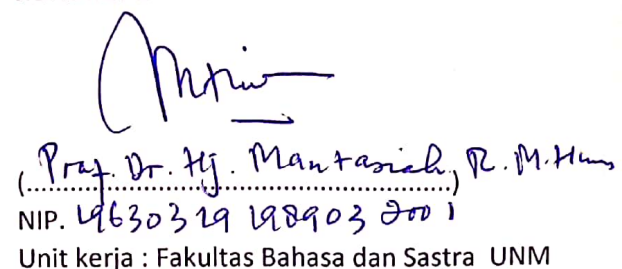 (Prof. Dr. Hj. Mantasiah, R. M.Hum)
NIP. 19630319 198903 2001
Unit kerja : Fakultas Bahasa dan Sastra UNM